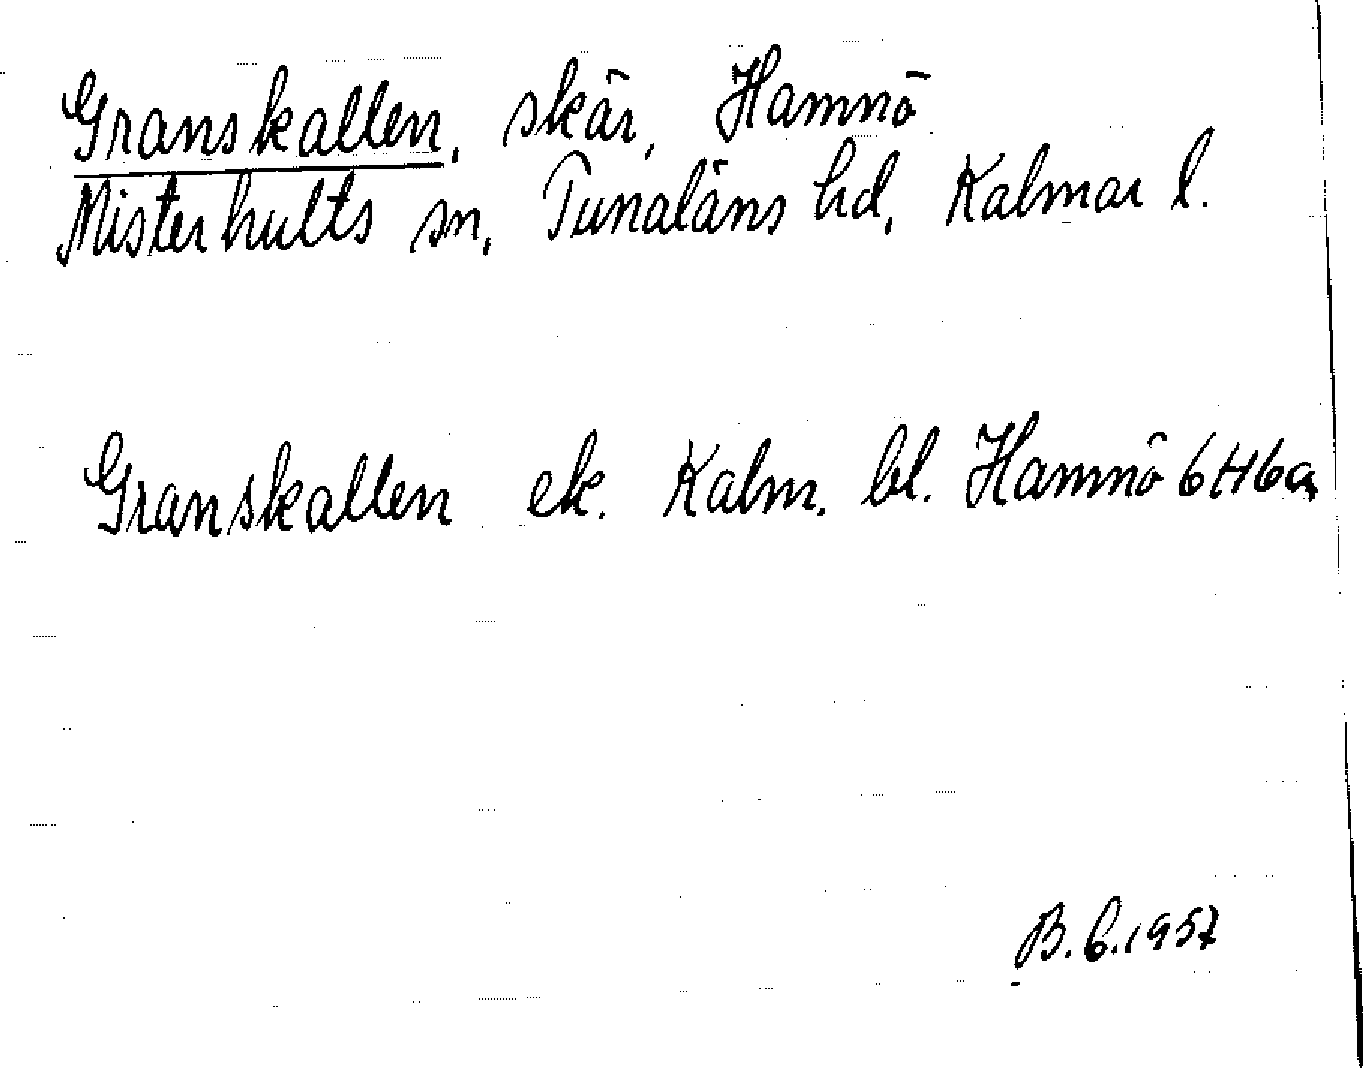 Granskallen, skär, Hamnö
Misterhults sn, Tunaläns hd, Kalmar l.
Granskallen ek. Kalm. bl. Hamnö 6H6a
B.6.1957